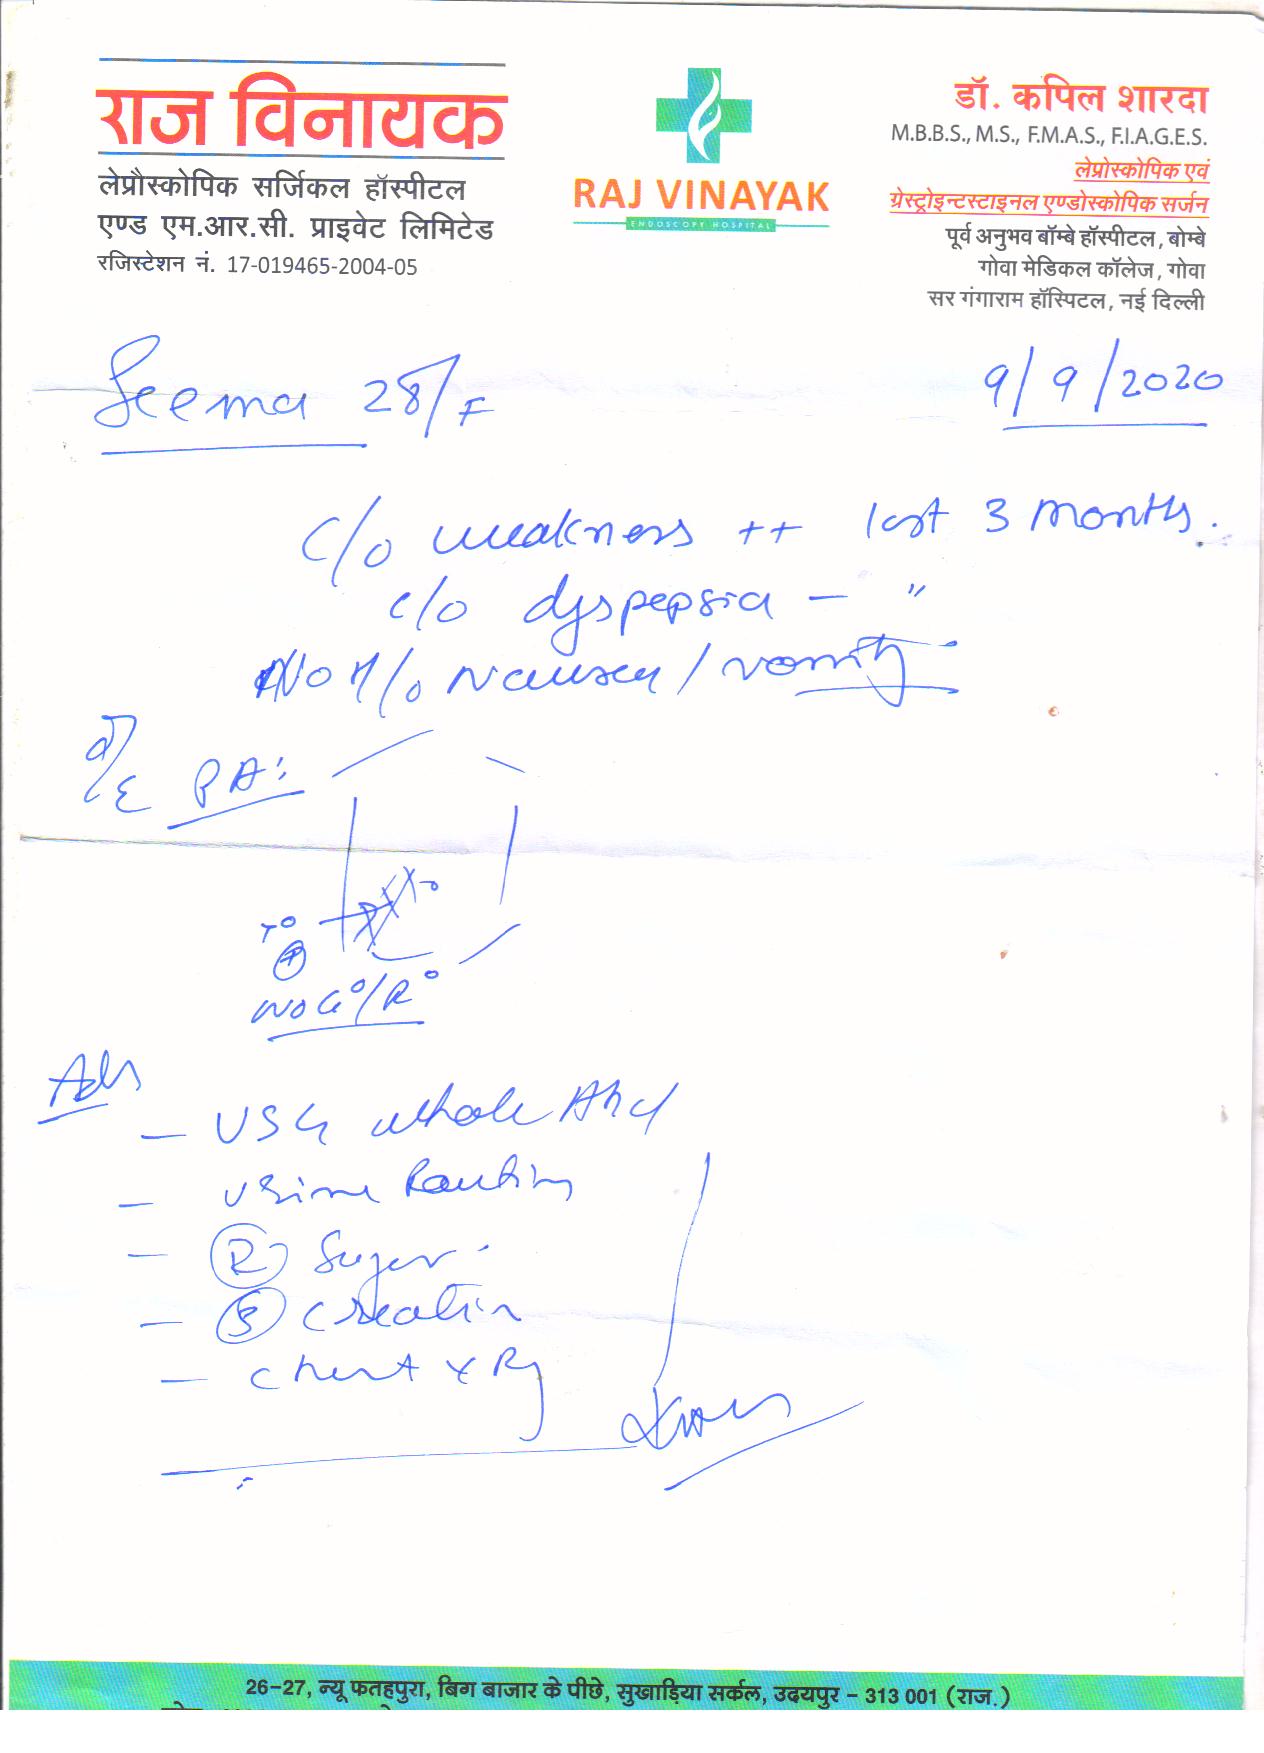 राज विनायक
लेप्रौस्कोपिक सर्जिकल हॉस्पीटल
एण्ड एम.आर.सी. प्राइवेट लिमिटेड
रजिस्टेशन नं. 17-019465-2004-05
RAJ VINAYAK
ENDOSCOPY HOSPITAL
डॉ. कपिल शारदा
M.B.B.S., M.S., F.M.A.S., F.I.A.G.E.S.
लेप्रोस्कोपिक एवं
ग्रेस्ट्रोइन्टस्टाइनल एण्डोस्कोपिक सर्जन
पूर्व अनुभव बॉम्बे हॉस्पीटल, बोम्बे
गोवा मेडिकल कॉलेज, गोवा
सर गंगाराम हॉस्पिटल, नई दिल्ली
Seema 28/F
9/9/2020
C/o weakness ++ last 3 months.
c/o dyspepsia - "
No H/o Nausea / vomity
O/E PA:
T°
No G°/R°
Adv
- USG whole Abd
- Urine Routin
- R Suger
- S Creatin
- Chest X Ry
26-27, न्यू फतहपुरा, बिग बाजार के पीछे, सुखाड़िया सर्कल, उदयपुर - 313 001 (राज.)